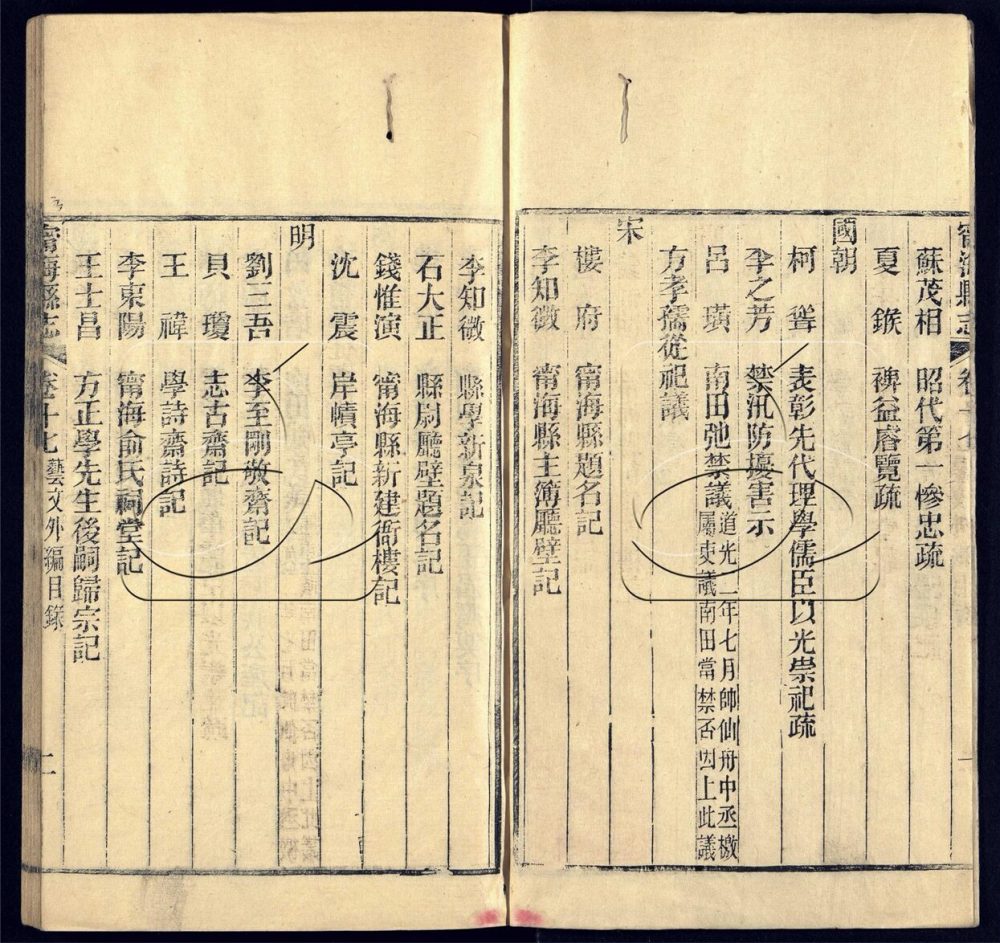 甯海縣志 卷十七 一
蘇茂相 昭代第一慘忠疏
夏鍭 裨益睿覽疏
國朝
柯聳 表彰先代理學儒臣以光崇祀疏
李之芳 禁汛防擾害示
呂璜 南田弛禁議 道光二年七月帥仙舟中丞檄
屬吏議南田當禁否因上此議
方孝孺從祀議
宋
樓府 甯海縣題名記
李知微 甯海縣主簿廳壁記
李知微 縣學新泉記
石大正 縣尉廳壁題名記
錢惟演 甯海縣新建衙樓記
沈震 岸幘亭記
明
劉三吾 李至剛敬齋記
貝瓊 志古齋記
王禕 學詩齋詩記
李東陽 甯海俞氏祠堂記
王士昌 方正學先生後嗣歸宗記
甯海縣志 卷十七 藝文外編目錄 二